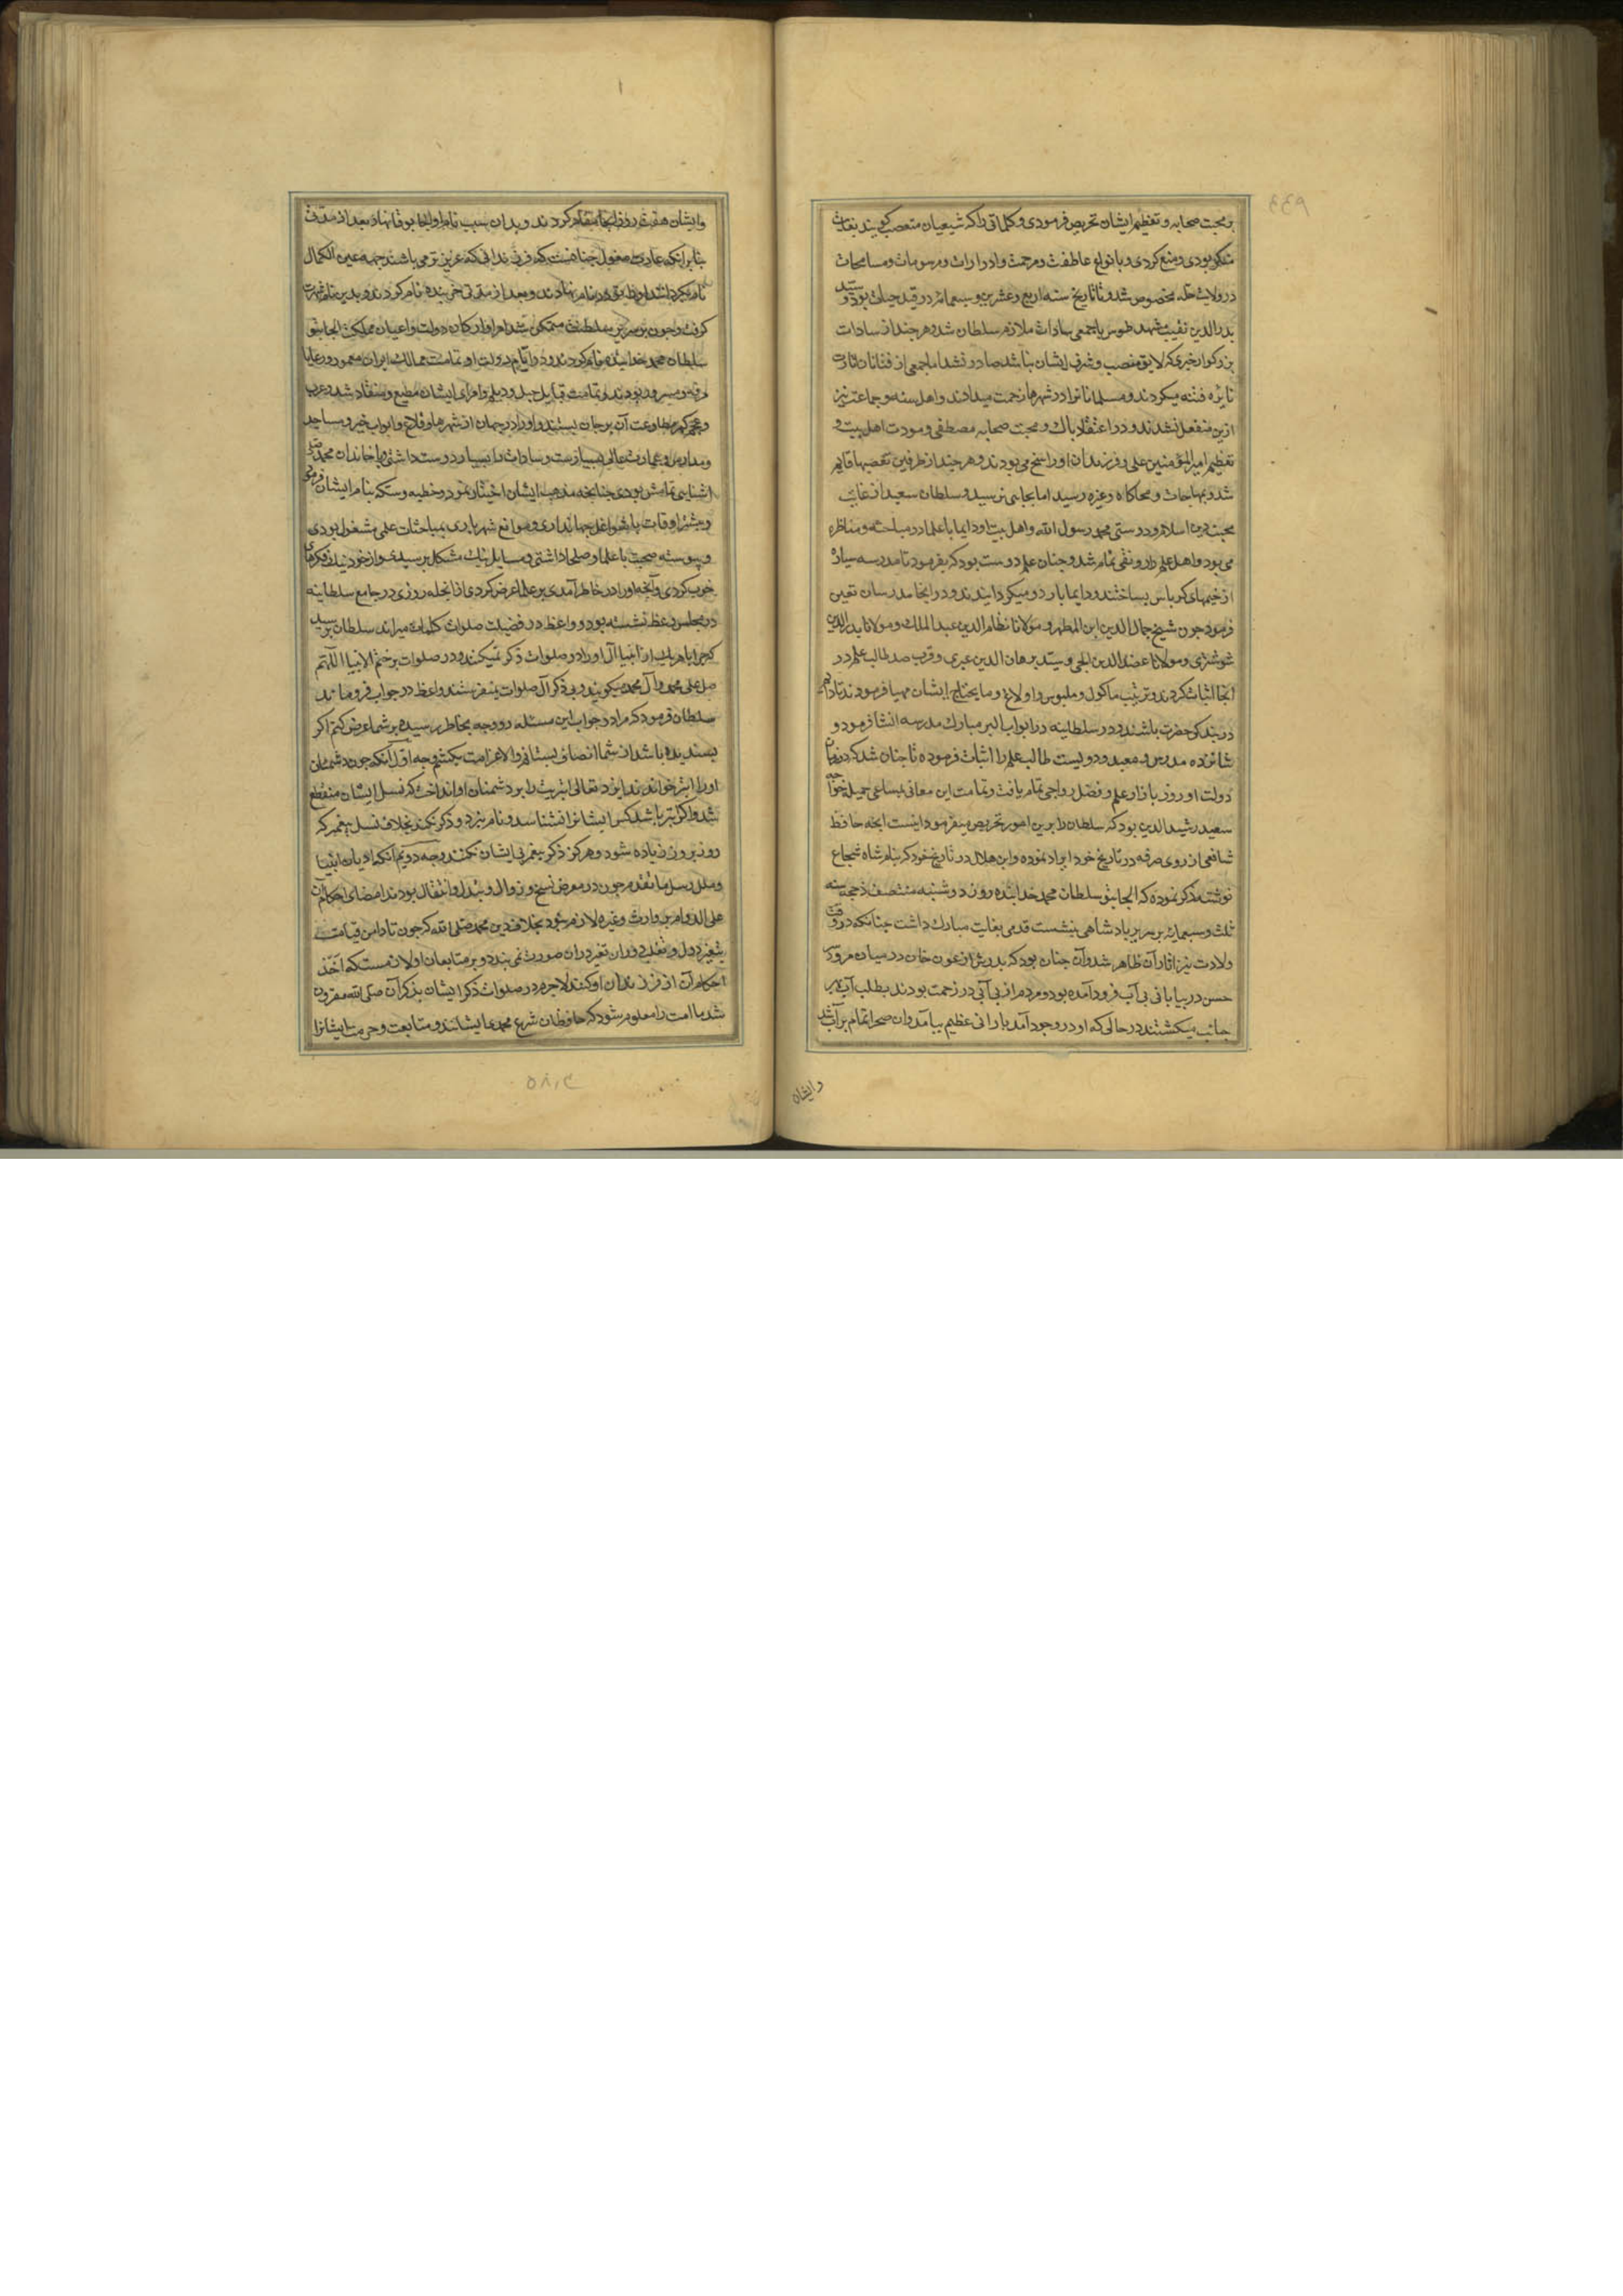 بر محبت صحابه و تعظیم ایشان تحریص فرمودی و کلماتی را که شیعیان متعصب کویند بغایت
منکر بودی و منع کردی و بانواع عاطفت و مرحمت و ادرارات و مرسومات و مسامحات
در ولایت حله مخصوص شد و تا تاریخ سنه اربع و عشرین و سبعمائه در قید حیات بود و سید
بدر الدین نقیب مشهد طوس با جمعی سادات ملازم سلطان شد و هر چند از سادات
بزرکوار خیری که لایق منصب و شرف ایشان باشد صادر نشد اما جمعی از فتانان اثارت
نایره فتنه میکردند و مسلمانانرا در شهرها زحمت میدادند و اهل سنه و جماعت نیز
ازین منفعل نشدند و در اعتقاد پاک و محبت صحابه مصطفی و مودت اهل بیت و
تعظیم امیر المؤمنین علی و فرزندان او راسخ می بودند و هر چند از طرفین تعصبها قایم
شد و بمباحثات و محاکات و غیره رسید اما بجایی نرسید و سلطان سعید از غایت
محبت دین اسلام و دوستی محمد رسول الله و اهل بیت او دایما با علما در مباحثه و مناظره
می بود و اهل علم را رونقی تمام شد و چنان علم دوست بود که بفرمود تا مدرسه سیاره
از خیمهای کرباس بساختند و دایما با اردو میکردانیدند و در آنجا مدرسان تعین
فرمود چون شیخ جمال الدین ابن المطهر و مولانا نظام الدین عبد الملک و مولانا بدر الدین
شوشتری و مولانا عضد الدین ایجی و سید برهان الدین عبری و قرب صد طالب علم در
آنجا اثبات کردند و ترتیب ماکول و ملبوس و اولاغ و ما یحتاج ایشان مهیا فرمودند تا دایم
در بندکی حضرت باشند و در سلطانیه در ابواب البر مبارک مدرسه انشا فرمود و
شانزده مدرس و معید و دویست طالب علم را اثبات فرموده تا چنان شد که در زمان
دولت او روز بازار علم و فضل رواجی تمام یافت و تمامت این معانی بمساعی جمیل خواجه
سعید رشید الدین بود که سلطان را برین امور تحریص میفرمود اینست آنچه حافظ
شافعی از روی صرفه در تاریخ خود ایراد نموده و ابن هلال در تاریخ خود که بنام شاه شجاع
نوشته ذکر نموده که الجایتو سلطان محمد خدابنده روز دوشنبه منتصف ذی حجه سنه
ثلث و سبعمایه بر سریر پادشاهی بنشست قدمی بغایت مبارک داشت چنانکه در وقت
ولادت نیز اثار آن ظاهر شد و آن چنان بود که پدرش ارغون خان در میان مرو و
سرخس در بیابانی بی آب فرود آمده بود و مردم از بی آبی در زحمت بودند بطلب آب هر
جانب میکشتند در حالی که او در وجود آمد بارانی عظیم بیامد و آن صحرا تمام پر آب شد
وایشان
وایشان هفت روز آنجا مقام کردند و بدان سبب نام او اولجا بوقا نهاد بعد از مدتی
بنابر آنکه عادت مغول چنانست که فرزندانی که عزیزتر می باشند جهه عین الکمال
نام بکردانند او را نام نهادند و بعد از مدتی خربنده نام کردند و بدین نام شهرت
کرفت و چون بر سریر سلطنت متمکن شد امرا و ارکان دولت و اعیان مملکت الجایتو
سلطان محمد خدابنده نام کردند و در ایام دولت او تمامت ممالک ایران معمور و رعایا
مرفه و مسرور بودند و تمامت قبایل جبل و دیلم و امرای ایشان مطیع و منقاد شد و عرب
و عجم کمر مطاوعت آن بر جان بستند و او را در جهان از شهرها و قلاع و ابواب خیر و مساجد
و مدارس و عمارت عالی بسیارست و سادات را بسیار دوست داشتی و با خاندان محمد صلی
آشنایی تمامش بودی چنانچه مذهب ایشان اختیار نمود و خطبه و سکه بنام ایشان فرمود
و بیشتر اوقات با شواغل جهانداری و موانع شهریاری بمباحثات علمی مشغول بودی
و پیوسته صحبت با علما و صلحا داشتی و مسایل نیک مشکل پرسیدی و از خود نیز فکرهای
خوب کردی و آنچه او را در خاطر آمدی بر علما عرض کردی از آنجمله روزی در جامع سلطانیه
در مجلس وعظ نشسته بود و واعظ در فضیلت صلوات کلمات میراند سلطان پرسید
که چرا با هر یک از انبیا آل او را در صلوات ذکر نمیکنند و در صلوات بر ختم الانبیا اللهم
صل علی محمد و آل محمد میکویند و بی ذکر آل صلوات نمیفرستند واعظ در جواب فرو ماند
سلطان فرمود که مرا در جواب این مسئله دو وجه بخاطر رسیده بر شما عرض کنم اکر
پسندیده باشد از شما انصاف بستانم والا غرامت بکشم وجه اول آنکه چون دشمنان
او را ابتر خواندند ایزد تعالی ابتریت را بر دشمنان او انداخت که نسل ایشان منقطع
شد و اکر نیز باشد کس ایشانرا نشناسد و نام نبرد و ذکر نکند بخلاف نسل پیغمبر که
روز بروز زیاده شود و هرکز ذکر پیغمبر بی ایشان نکنند وجه دویم آنکه ادیان انبیا
و ملل رسل ما تقدم چون در معرض نسخ و زوال و تبدل و انتقال بودند امضای احکام آن
علی الدوام بر وارث و غیره لازم نبود بخلاف دین محمد صلی الله که چون تا دامن قیامت
بتغیر دول و تقلب دوران تغیر در آن صورت نمی بندد و بر متابعان او لازمست که اخذ
احکام آن از فرزندان او کنند لاجرم در صلوات ذکر ایشان بذکر آن صلی الله مقرون
شد تا امت را معلوم شود که حافظان شرع محمد ایشانند و متابعت و حرمت ایشانرا